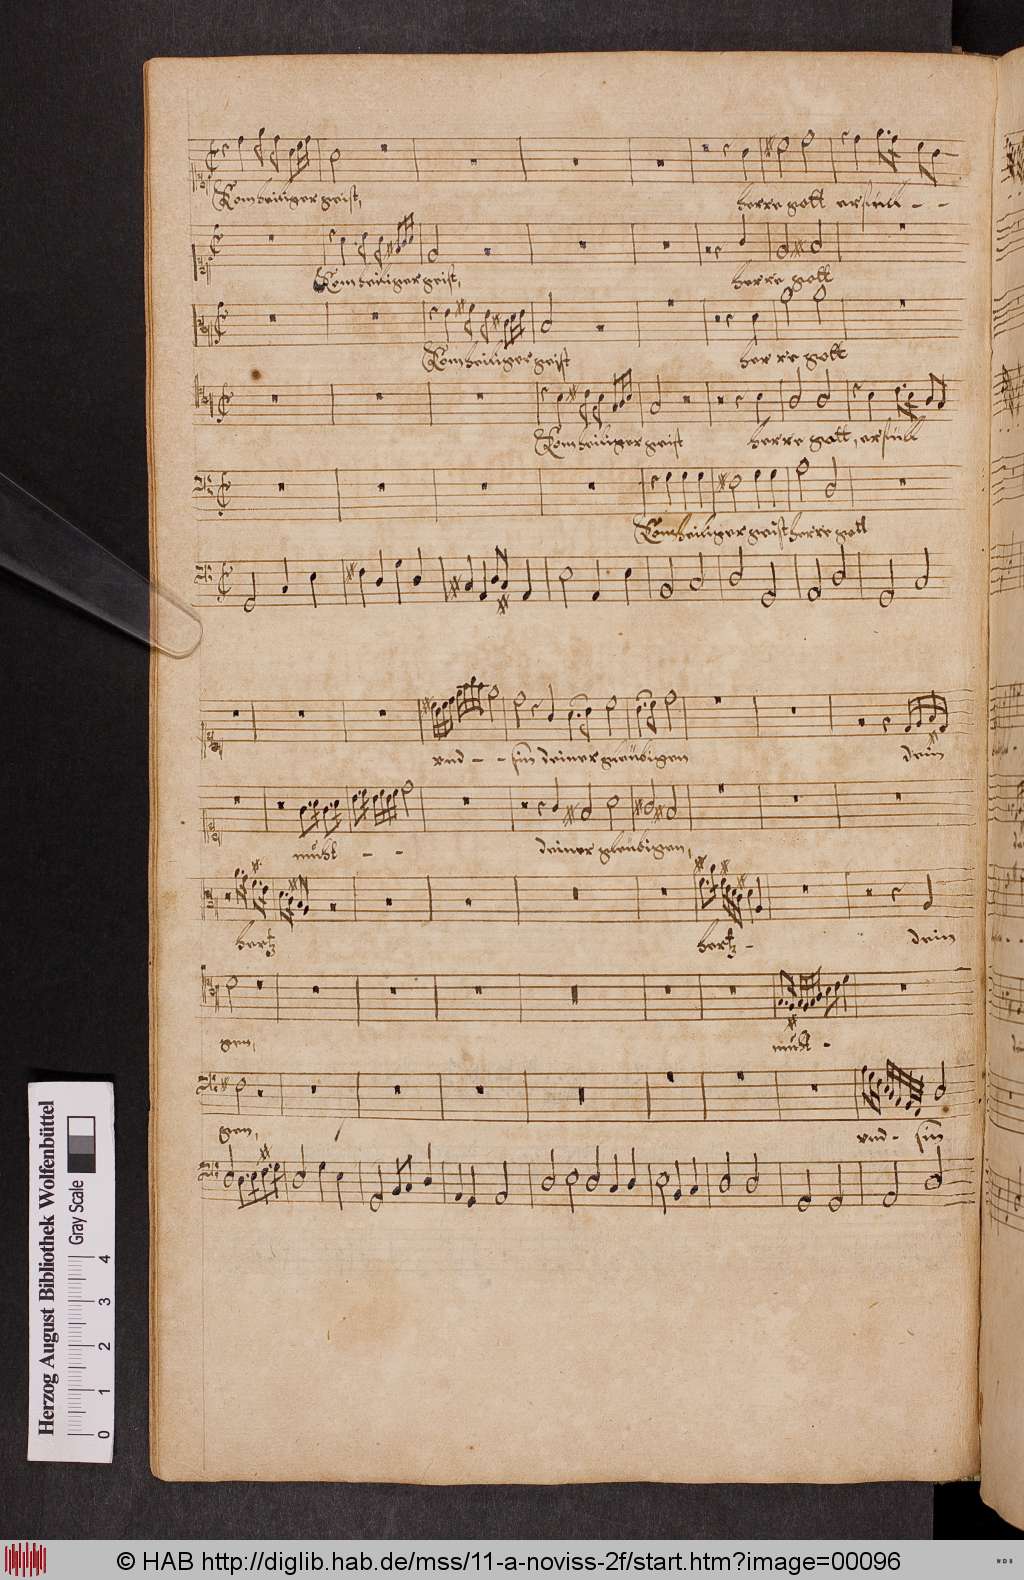 Kom heiliger geist, herre gott erfüll - -
Kom heiliger geist, herre gott
Kom heiliger geist herre gott
Kom heiliger geist herre gott, erfüll
Kom heiliger geist herre gott
vnd - - sin deiner gleubigen dein
muht - - deiner gleubigen,
hertz hertz - dein
gen, muht -
gen, vnd - sin
Herzog August Bibliothek Wolfenbüttel
Gray Scale
0 1 2 3 4
© HAB http://diglib.hab.de/mss/11-a-noviss-2f/start.htm?image=00096